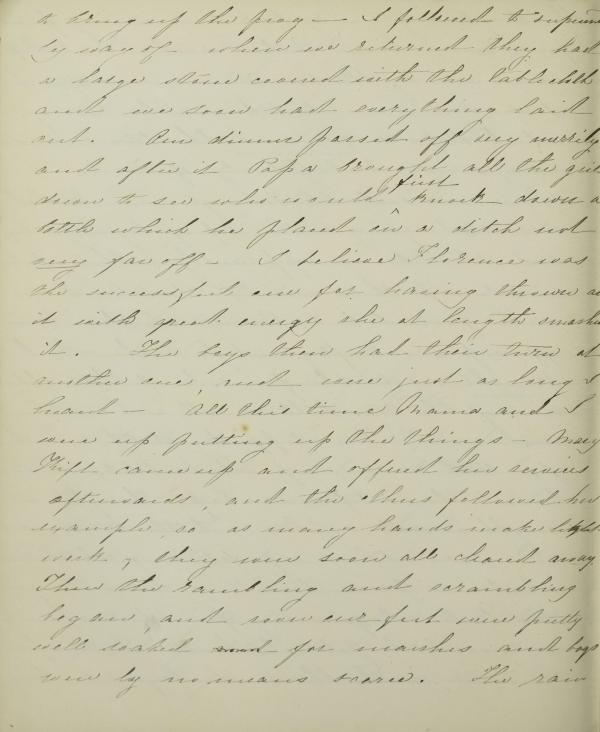 to bring up the prog — I followed to superin
by way of — when we returned they had
a large stone covered with the tablecloth
and we soon had everything laid
out. Our dinner passed off very merrily
and after it Papa brought all the girls
down to see who would first knock down a
bottle which he placed in a ditch not
very far off — I believe Florence was
the successful one for having thrown at
it with great energy she at length smashed
it. The boys then had their turn at
another one, and were just as long I
heard — All this time Mama and I
were up putting up the things — Mary
Thift came up and offered her services
afterwards, and the others followed her
example, so as many hands make light
work, they were soon all cleared away.
Then the rambling and scrambling
began, and soon our feet were pretty
well soaked for marshes and bogs
were by no means scarce. The rain